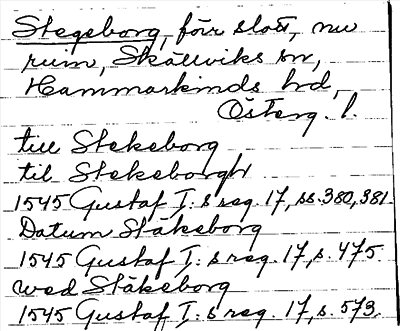 Stegeborg, förr slott, nu
ruin, Skällviks sn,
Hammarkinds hd,
Österg. l.
till Stekeborg
til Stekeborgh
1545 Gustaf I:s reg. 17, ss. 380, 381.
Datum Stäkeborg
1545 Gustaf I:s reg. 17, s. 475.
wed Stäkeborg
1545 Gustaf I:s reg. 17, s. 573.